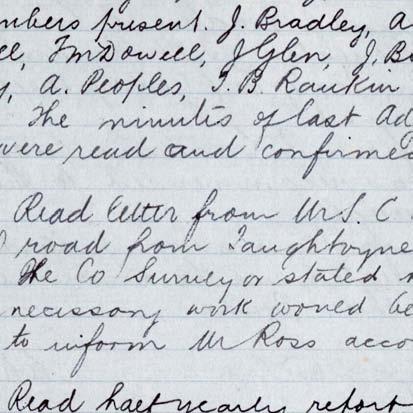 mbers present. J. Bradley, A
ll, F McDowell, J Glen, J. B
y, A. Peoples, T. B. Rankin
The minutes of last Ad
were read and confirmed
Read letter from Mr S. C
road from Taughboyne
The Co Surveyor stated
necessary work would be
to inform Mr Ross acco
Read half yearly report